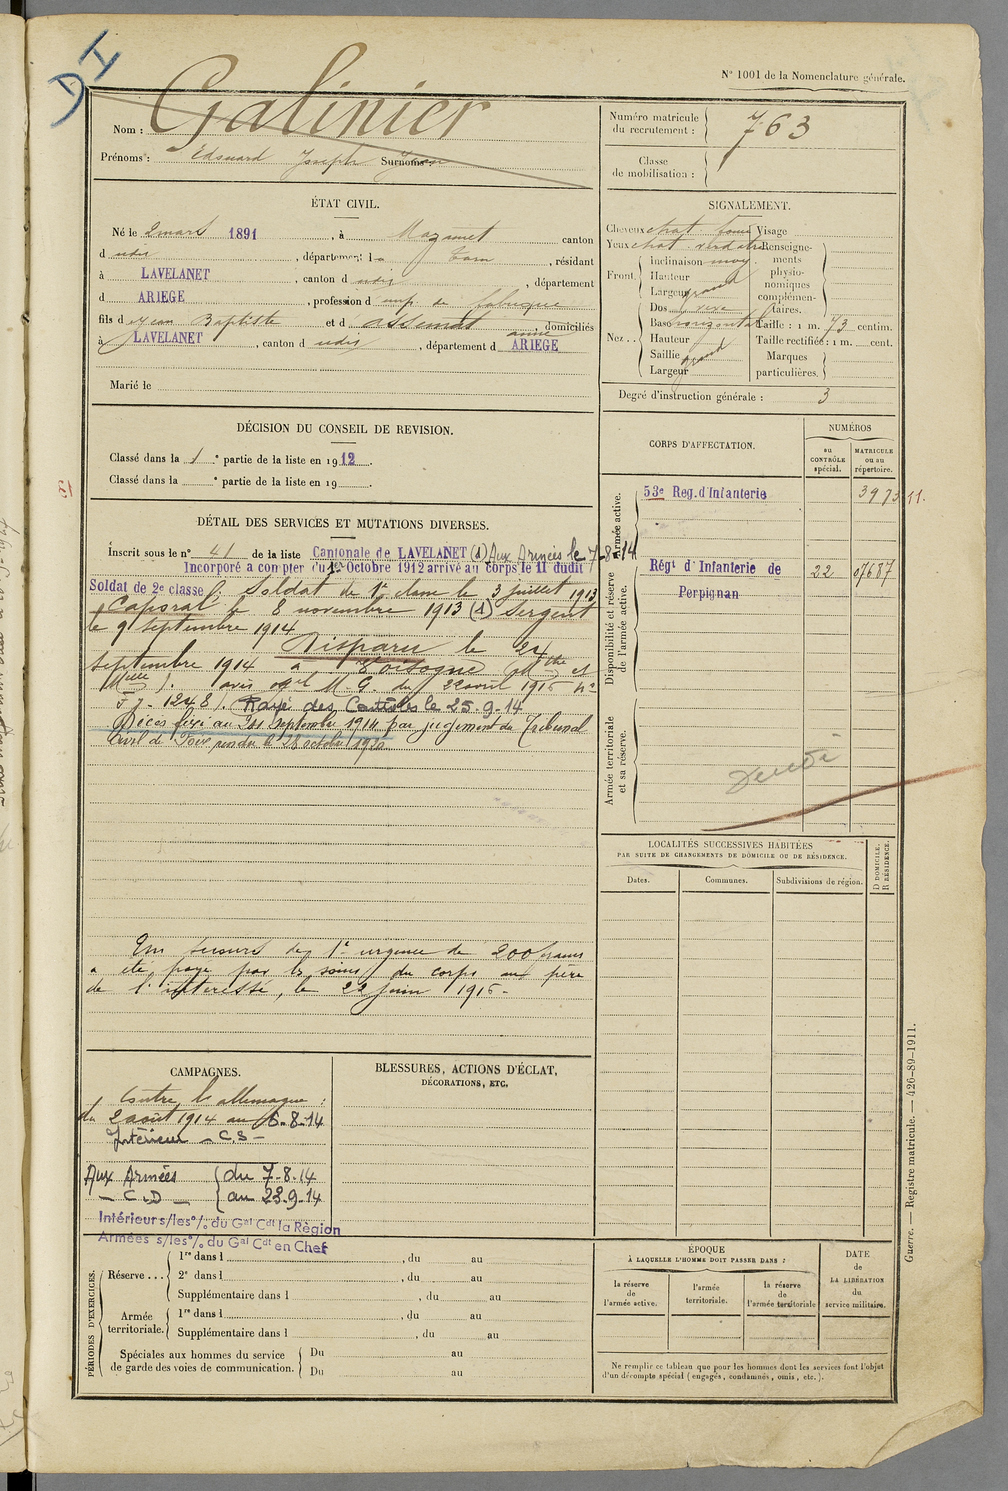 DI
N° 1001 de la Nomenclature générale.
Nom : Galinier
Prénoms : Edouard Joseph Surnoms :
Numéro matricule du recrutement : 763
Classe de mobilisation :
ÉTAT CIVIL.
Né le 2 mars 1891, à Mazamet canton
d udit, département d u Tarn, résidant
à LAVELANET, canton d udit, département
d ARIEGE, profession d emp. de fabrique
fils d e Jean Baptiste et d domiciliés
à LAVELANET, canton d udit, département d ARIEGE
Marié le
SIGNALEMENT.
Cheveux chat. foncé Visage
Yeux chat. verdatre Renseigne-
ments
physio-
nomiques
complémen-
taires.
Front. Inclinaison moy.
Hauteur
Largeur grand
Nez .. Dos
Base horizontale
Hauteur
Saillie grand
Largeur
Taille : 1 m. 73 centim.
Taille rectifiée : 1 m. cent.
Marques
particulières.
Degré d'instruction générale : 3
DÉCISION DU CONSEIL DE REVISION.
Classé dans la 1e partie de la liste en 1912.
Classé dans la e partie de la liste en 19 .
13
CORPS D'AFFECTATION.
NUMÉROS
au CONTRÔLE spécial.
MATRICULE ou au répertoire.
Armée active.
53e Reg. d'Infanterie 3973 11.
Disponibilité et réserve de l'armée active.
Régt d'Infanterie de 22 07687
Perpignan
Armée territoriale et sa réserve.
DÉTAIL DES SERVICES ET MUTATIONS DIVERSES.
Inscrit sous le n° 41 de la liste Cantonale de LAVELANET (1) Aux Armées le 7-8-14
Incorporé à compter du 1er Octobre 1912 arrivé au corps le 11 dudit
Soldat de 2e classe Soldat de 1e classe le 3 juillet 1913
Caporal le 8 novembre 1913 (1) Sergent
le 9 septembre 1914
Disparu le 24
septembre 1914 à
avis oel M.G. du 22 avril 1915 n°
1248. Rayé des Contrôles le 25-9-14
Décès fixé au 24 septembre 1914 par jugement du Tribunal
Civil de Foix rendu le 28 octobre 1920
Un secours de 1e urgence de 200 francs
a été payé par les soins du corps au père
de l'intéressé, le 22 juin 1915 -
LOCALITÉS SUCCESSIVES HABITÉES
PAR SUITE DE CHANGEMENTS DE DOMICILE OU DE RÉSIDENCE.
Dates.
Communes.
Subdivisions de région.
D DOMICILE.
R RÉSIDENCE.
CAMPAGNES.
Contre l'allemagne :
du 2 août 1914 au 6-8-14
Intérieur - C.S -
Aux Armées du 7-8-14
- C.D - au 23-9-14
Intérieur s/les °/. du Gal Cdt la Région
Armées s/les °/. du Gal Cdt en Chef
BLESSURES, ACTIONS D'ÉCLAT,
DÉCORATIONS, ETC.
PÉRIODES D'EXERCICES.
Réserve ...
1re dans l , du au
2e dans l , du au
Supplémentaire dans l , du au
Armée territoriale.
1re dans l , du au
Supplémentaire dans l , du au
Spéciales aux hommes du service
de garde des voies de communication.
Du au
Du au
ÉPOQUE
À LAQUELLE L'HOMME DOIT PASSER DANS :
la réserve de l'armée active.
l'armée territoriale.
la réserve de l'armée territoriale
DATE de LA LIBÉRATION du service militaire.
Ne remplir ce tableau que pour les hommes dont les services font l'objet
d'un décompte spécial (engagés, condamnés, omis, etc.).
Guerre. — Registre matricule. — 426-89-1911.